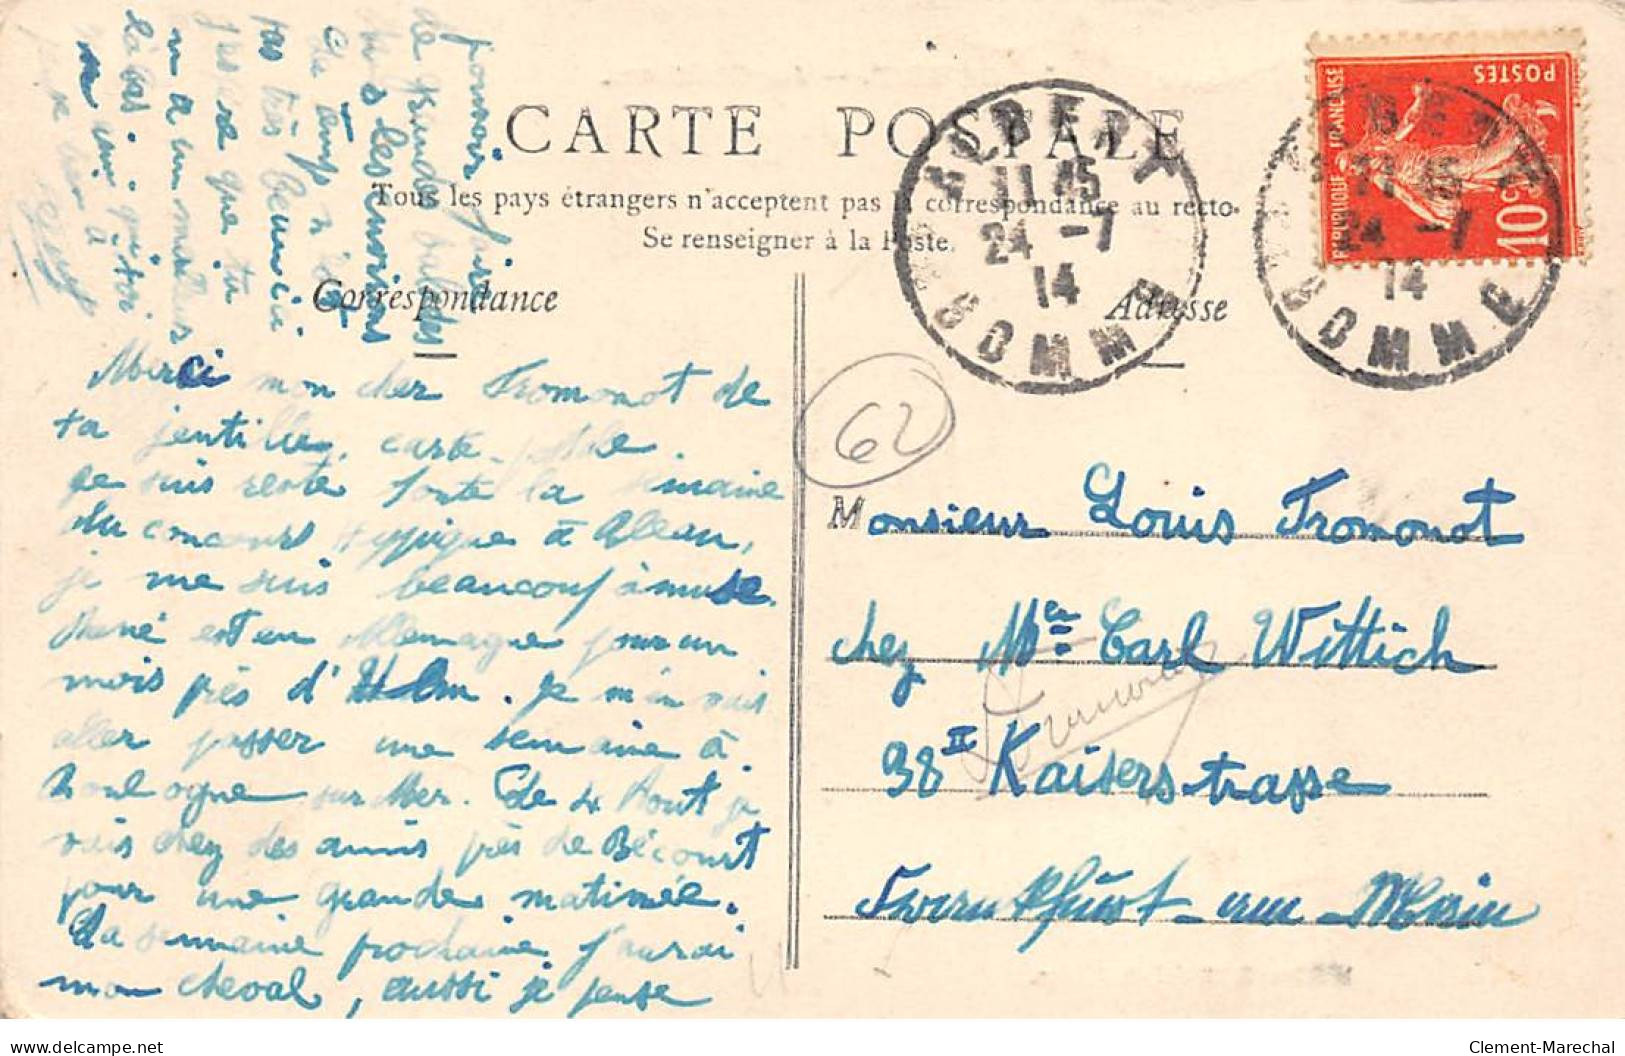 CARTE POSTALE
Tous les pays étrangers n'acceptent pas la correspondance au recto.
Se renseigner à la Poste.
Correspondance
Adresse
ALBERT
11 45
24 -7
14
SOMME
ALBERT
11 45
24 -7
14
SOMME
REPUBLIQUE FRANÇAISE
POSTES
10c
62
Merci mon cher Fromonot de
ta jentille carte postale.
Je suis resté toute la semaine
du concours hyppique à
je me suis beaucoup amusé.
René est en Allemagne pour un
mois près d'Ulm. Je m'en vais
aller passer une semaine à
Boulogne sur Mer. Le 4 Août je
vais chez des amis près de Bécourt
pour une grande matinée.
La semaine prochaine j'aurai
mon cheval, aussi je pense
pouvoir faire
de grandes balades
dans les environs
Le temps n'est
pas très beau ici
j'espère que tu
en a un meilleur
là bas.
Monsieur Louis Fromonot
chez Mr Carl Wittich
38 II Kaiserstrasse
Frankfurt-am-Main
delcampe.net
Clement-Marechal